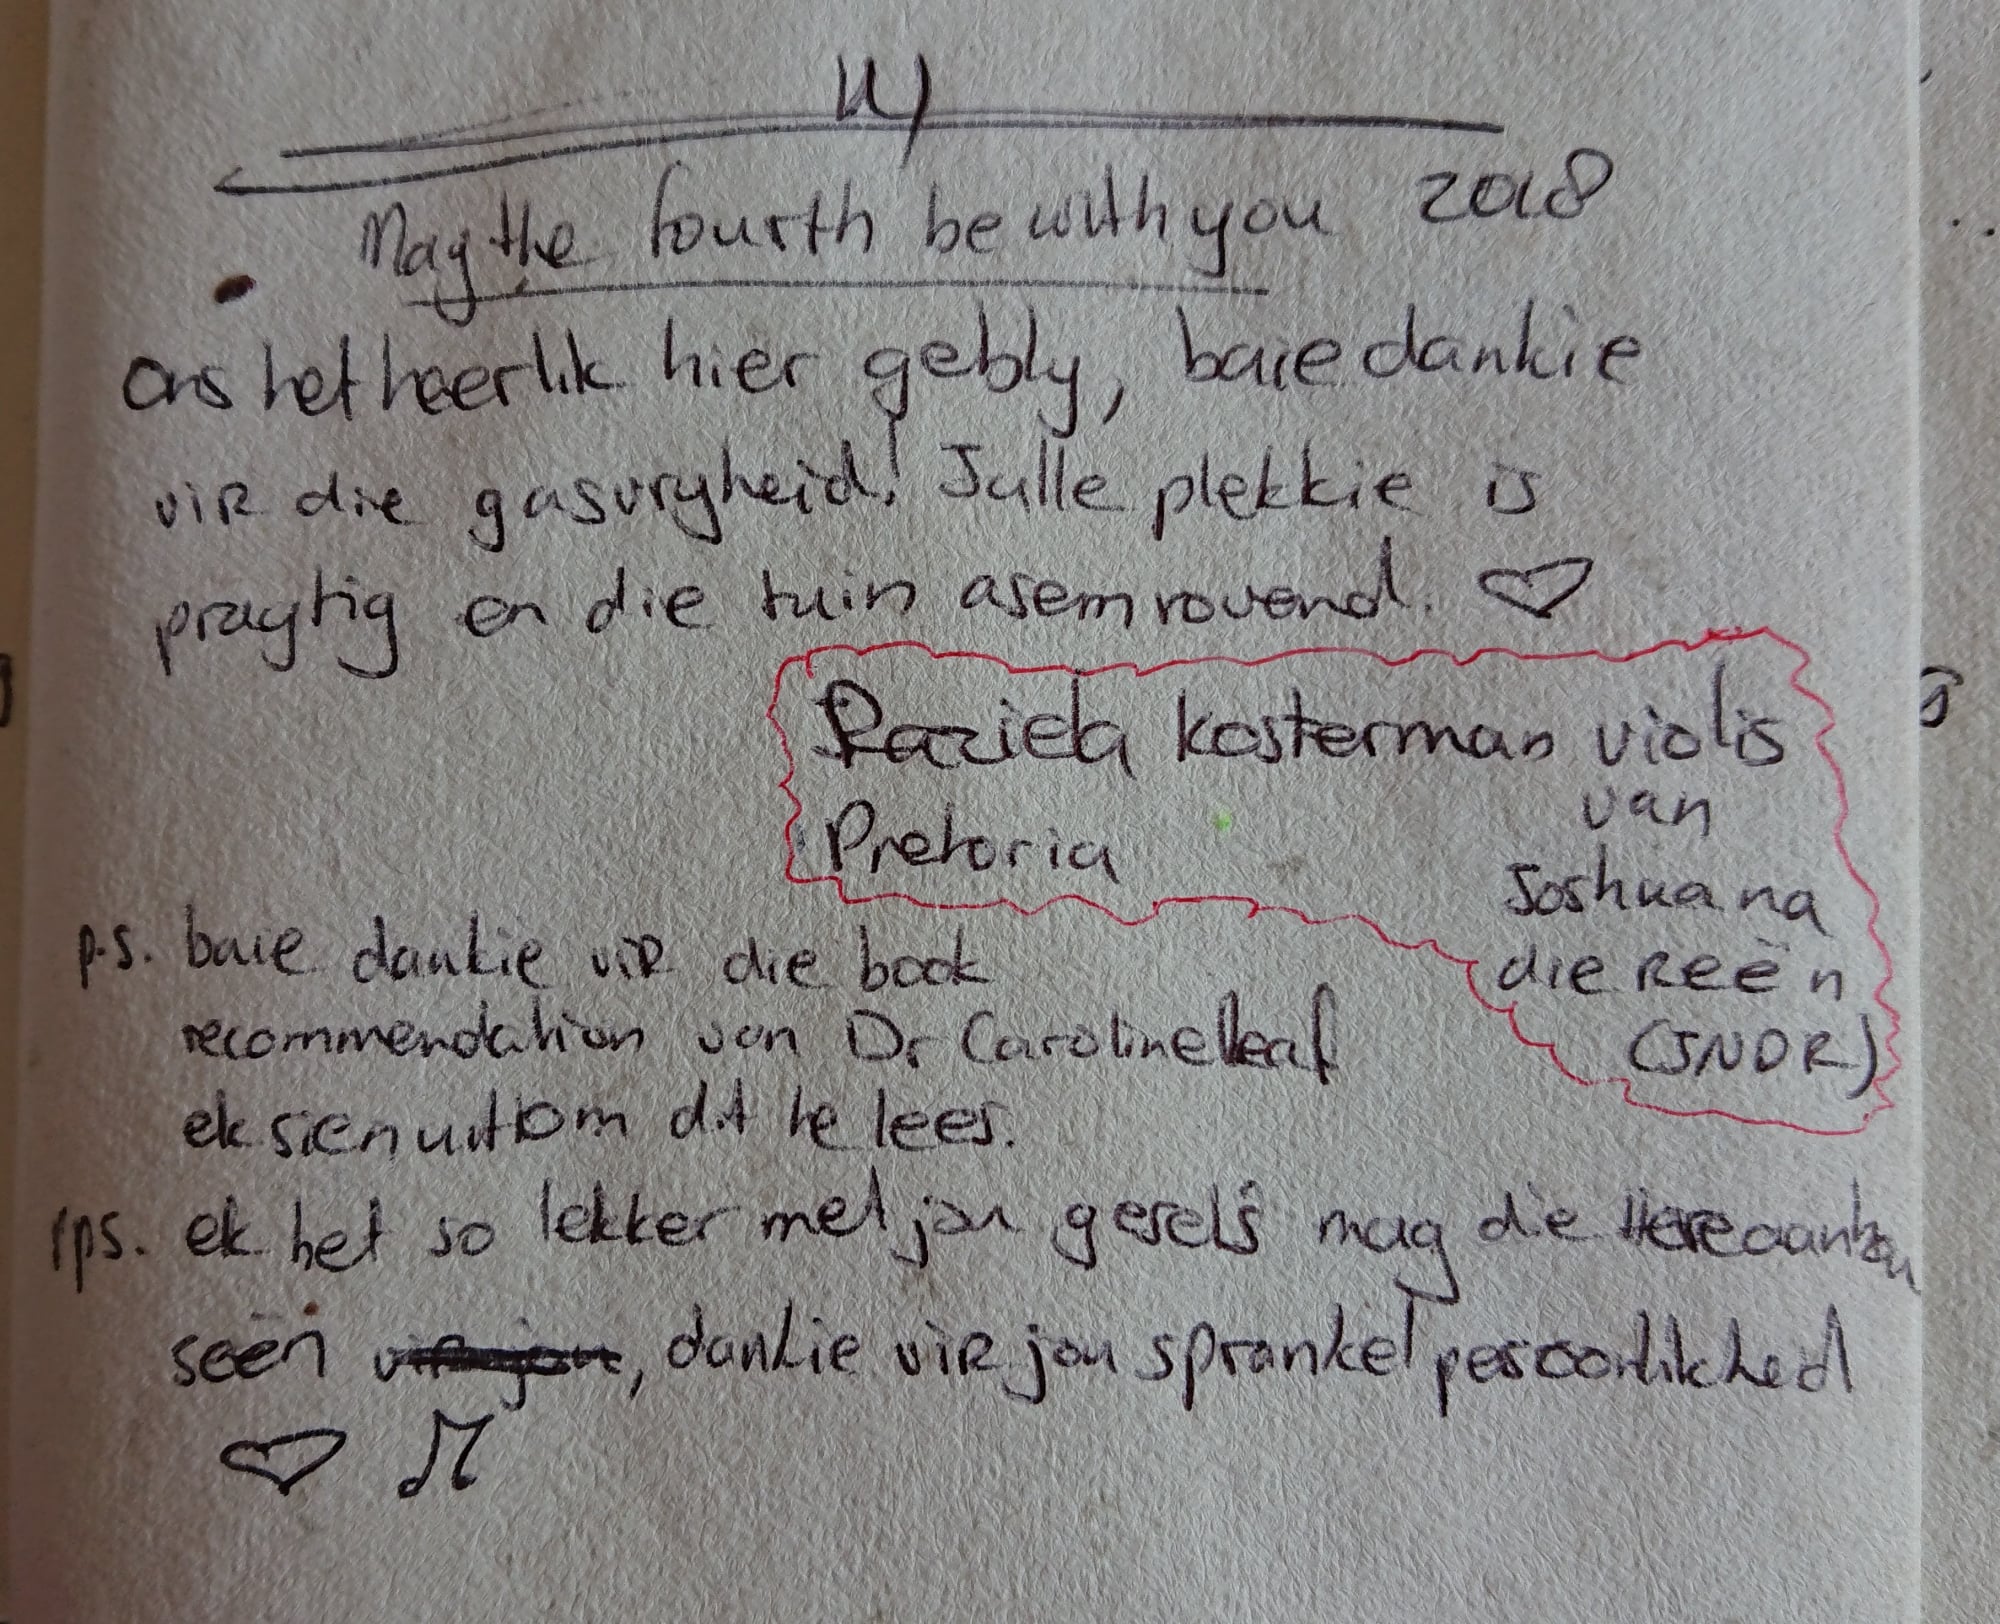 May the fourth be with you 2018
Ons het heerlik hier gebly, baie dankie
vir die gasvryheid! Julle plekkie is
pragtig en die tuin asemrovend. ♡
Raziela Kosterman violis
Pretoria van
Joshua na
die Reën
(JNDR)
p.s. baie dankie vir die book
recommendation van Dr Caroline leaf
ek sien uit om dit te lees.
ps. ek het so lekker met jou gesels mag die Here aanhou
seën, dankie vir jou sprankel persoonlikheid
♡ ♫